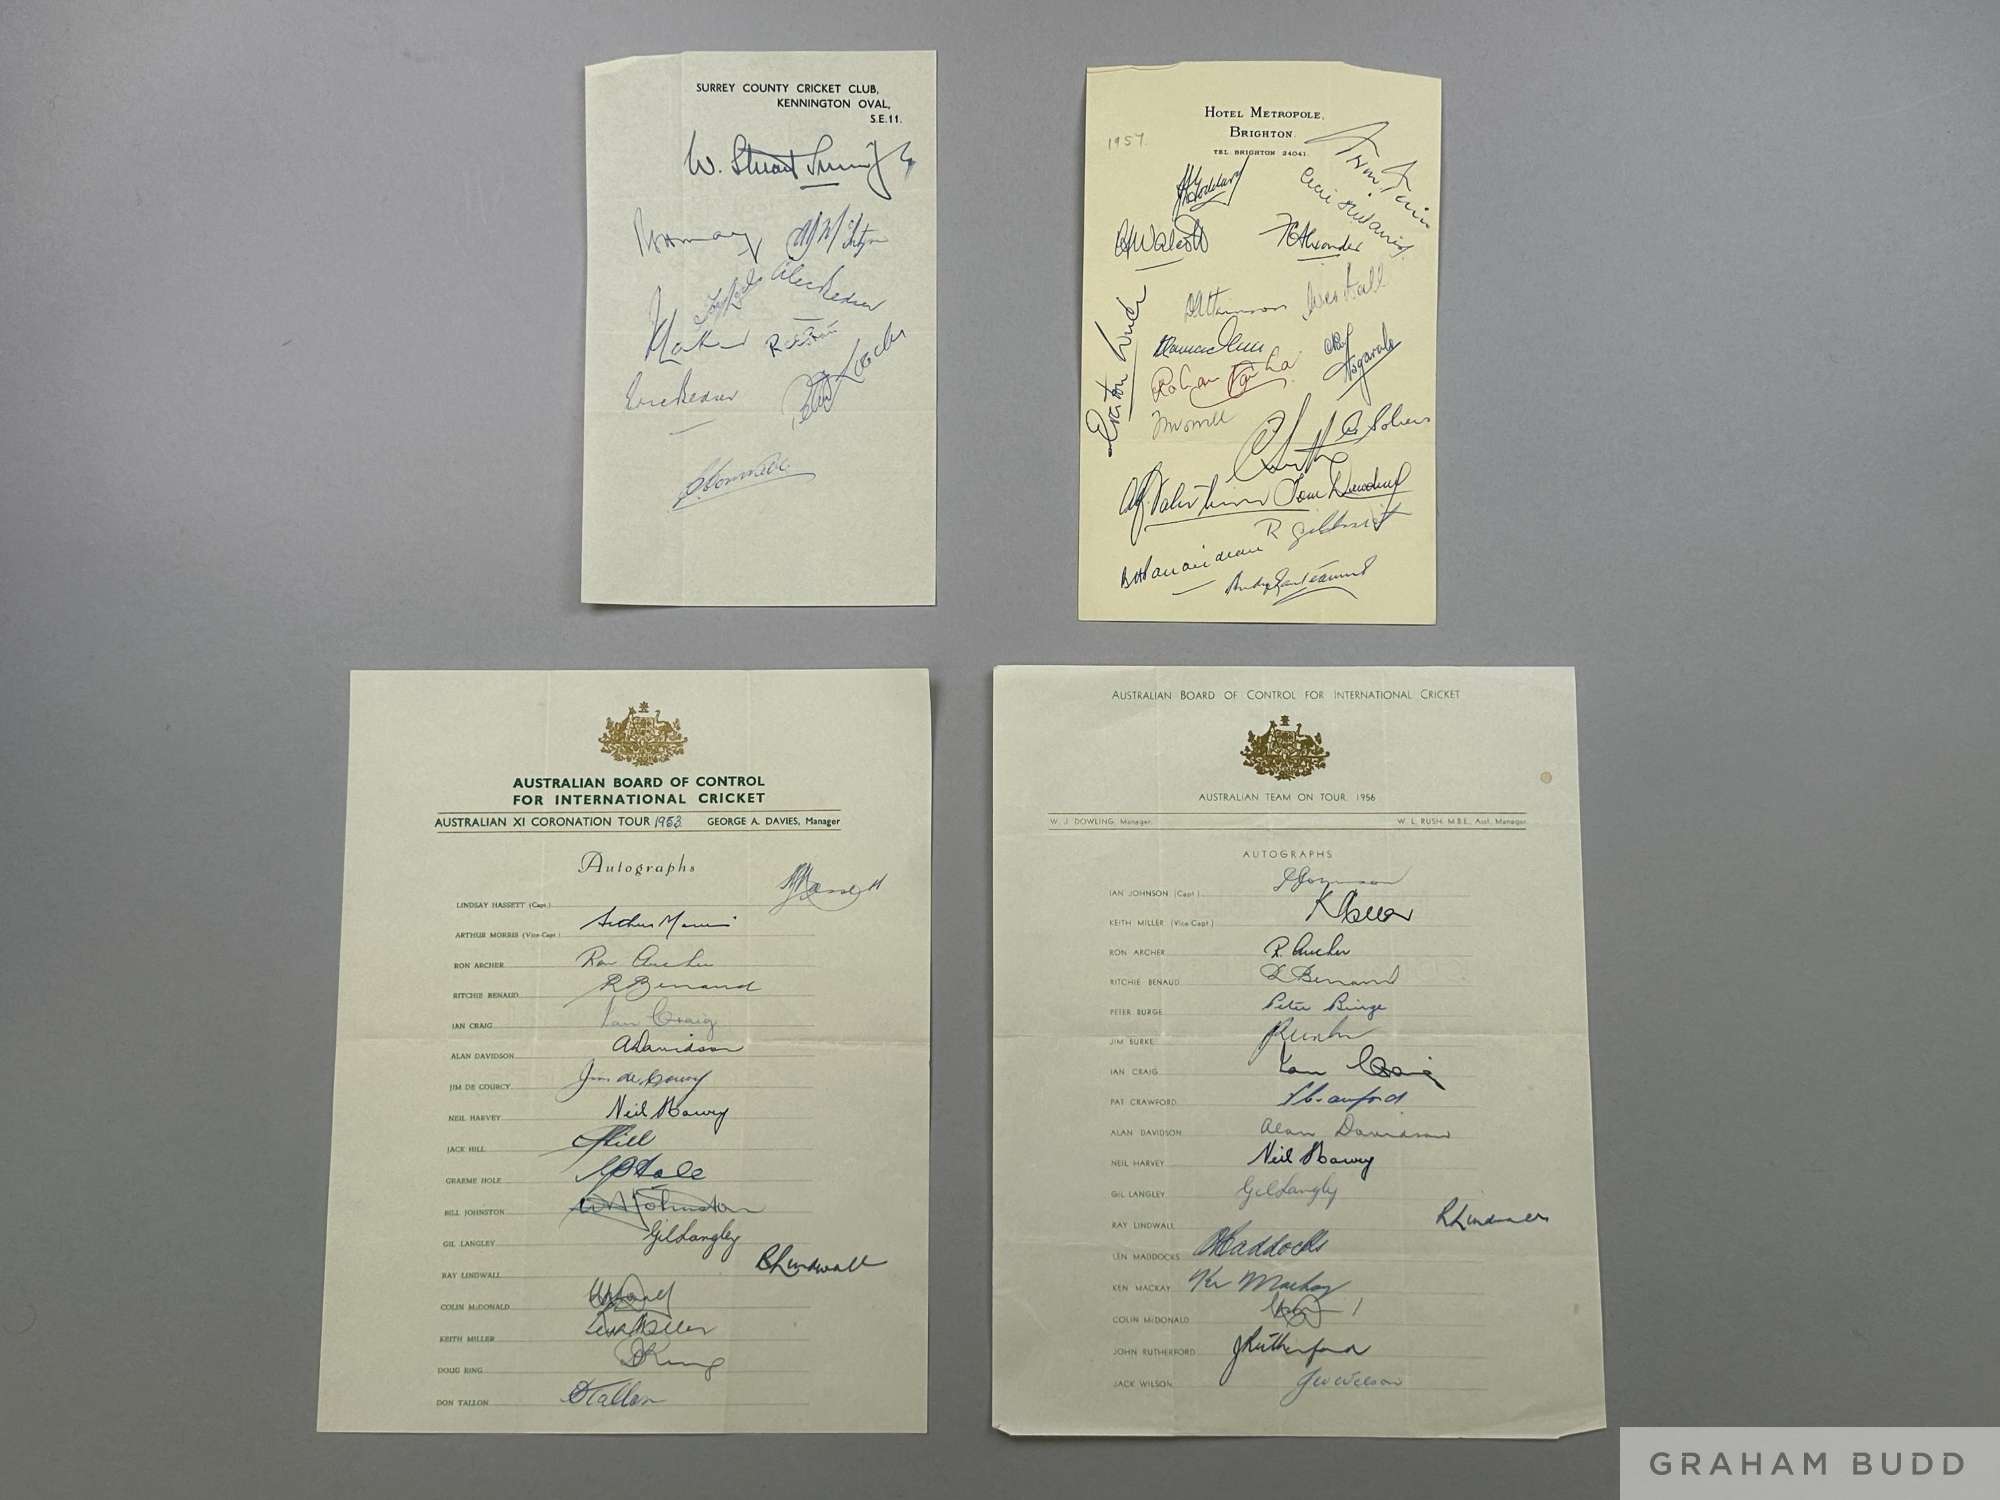 SURREY COUNTY CRICKET CLUB,
KENNINGTON OVAL,
S.E.11.
W. Stuart Surridge
Alec Bedser
Eric Bedser
Peter Loader
HOTEL METROPOLE,
BRIGHTON.
TEL. BRIGHTON 24041.
1957.
Wes Hall
Everton Weekes
Rohan Kanhai
Tom Dewdney
R Gilchrist
Andy Ganteaume
AUSTRALIAN BOARD OF CONTROL
FOR INTERNATIONAL CRICKET
AUSTRALIAN XI CORONATION TOUR 1953. GEORGE A. DAVIES, Manager
Autographs
LINDSAY HASSETT (Capt.)
ARTHUR MORRIS (Vice-Capt.) Arthur Morris
RON ARCHER Ron Archer
RITCHIE BENAUD R Benaud
IAN CRAIG Ian Craig
ALAN DAVIDSON A Davidson
JIM DE COURCY Jim de Courcy
NEIL HARVEY Neil Harvey
JACK HILL J Hill
GRAEME HOLE G Hole
BILL JOHNSTON W A Johnston
GIL LANGLEY Gil Langley
RAY LINDWALL R Lindwall
COLIN McDONALD
KEITH MILLER Keith Miller
DOUG RING D Ring
DON TALLON D Tallon
AUSTRALIAN BOARD OF CONTROL FOR INTERNATIONAL CRICKET
AUSTRALIAN TEAM ON TOUR, 1956
W. J. DOWLING, Manager. W. L. RUSH, M.B.E., Asst. Manager
AUTOGRAPHS
IAN JOHNSON (Capt.) I Johnson
KEITH MILLER (Vice-Capt.) K Miller
RON ARCHER R. Archer
RITCHIE BENAUD R Benaud
PETER BURGE Peter Burge
JIM BURKE J Burke
IAN CRAIG Ian Craig
PAT CRAWFORD P Crawford
ALAN DAVIDSON Alan Davidson
NEIL HARVEY Neil Harvey
GIL LANGLEY Gil Langley
RAY LINDWALL R Lindwall
LEN MADDOCKS L Maddocks
KEN MACKAY Ken Mackay
COLIN McDONALD
JOHN RUTHERFORD J Rutherford
JACK WILSON J W Wilson
GRAHAM BUDD